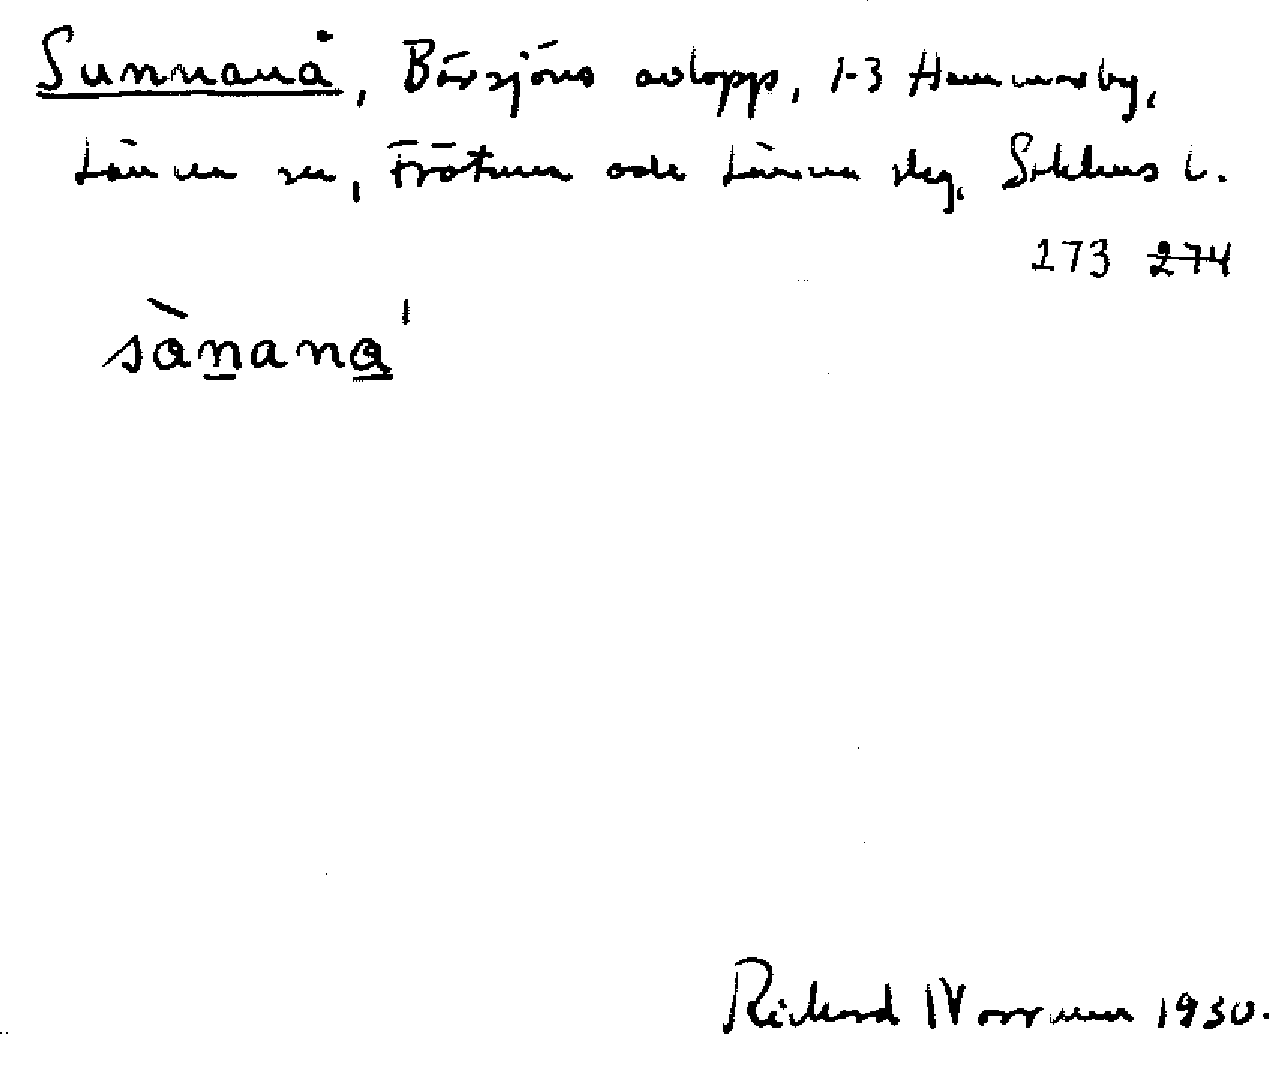 Sunnanå, Bärsjöns avlopp, 1-3 Hammarby,
Länna sn, Frötuna och Länna slg, Sthlms l.
173 274
sànana'
Rickard Norrman 1930.